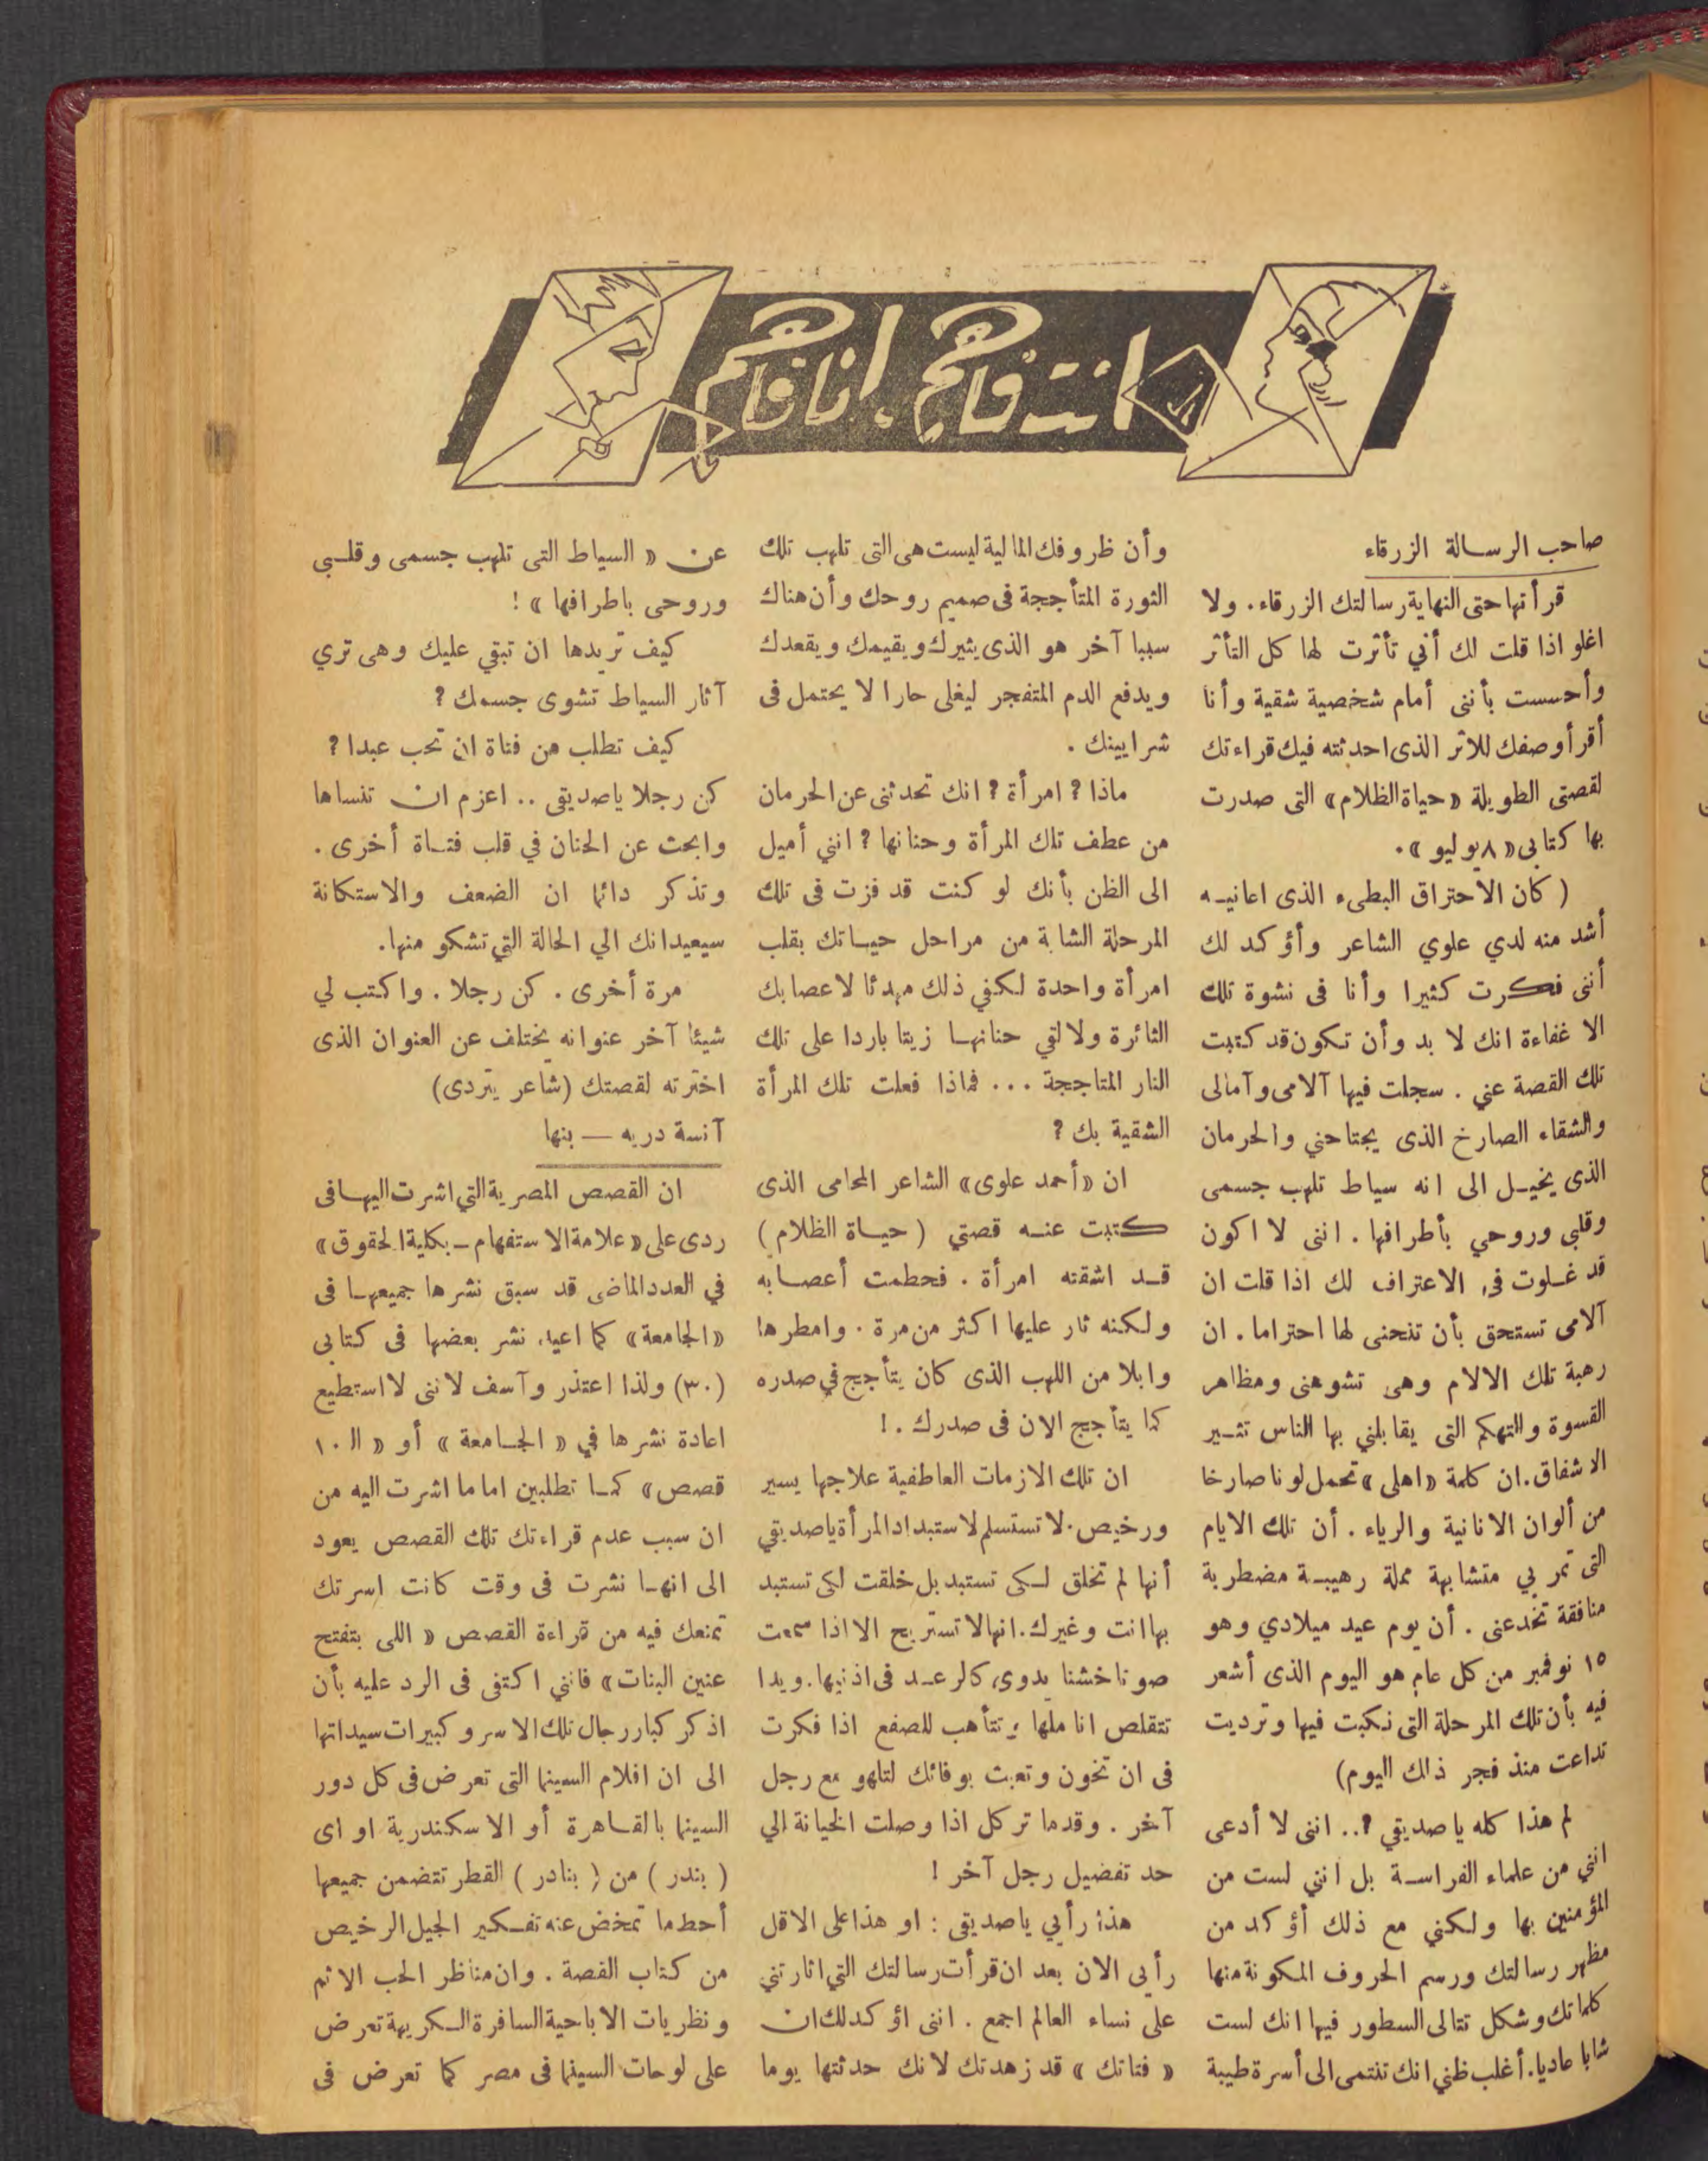 انت فاهم . انا فاهم
صاحب الرسالة الزرقاء
قرأتها حتى النهاية رسالتك الزرقاء. ولا
اغلو اذا قلت لك أني تأثرت لها كل التأثر
وأحسست بأننى أمام شخصية شقية وأنا
أقرأ وصفك للاثر الذى احدثته فيك قراءتك
لقصتى الطويلة «حياة الظلام» التى صدرت
بها كتابى «٨ يوليو».
( كان الاحتراق البطىء الذى اعانيه
أشد منه لدي علوي الشاعر وأؤكد لك
أننى فكرت كثيرا وأنا فى نشوة تلك
الاغفاءة انك لا بد وأن تكون قد كتبت
تلك القصة عني . سجلت فيها آلامى وآمالى
والشقاء الصارخ الذى يجتاحني والحرمان
الذى يخيل الى انه سياط تلهب جسمى
وقلبى وروحي بأطرافها . اننى لا اكون
قد غلوت فى الاعتراف لك اذا قلت ان
آلامى تستحق بأن تنحنى لها احتراما . ان
رهبة تلك الالام وهى تشوهنى ومظاهر
القسوة والتهكم التى يقابلني بها الناس تثير
الاشفاق. ان كلمة «اهلى» تحمل لونا صارخا
من ألوان الانانية والرياء . أن تلك الايام
التى تمر بي متشابهة مملة رهيبة مضطربة
منافقة تخدعنى . أن يوم عيد ميلادي وهو
١٥ نوفمبر من كل عام هو اليوم الذى أشعر
فيه بأن تلك المرحلة التى نكبت فيها وترديت
تداعت منذ فجر ذاك اليوم)
لم هذا كله يا صديقي ?.. اننى لا أدعى
انني من علماء الفراسة بل انني لست من
المؤمنين بها ولكني مع ذلك أؤكد من
مظهر رسالتك ورسم الحروف المكونة منها
كلماتك وشكل تتالى السطور فيها انك لست
شابا عاديا. أغلب ظني انك تنتمى الى أسرة طيبة
وأن ظروفك المالية ليست هى التى تلهب تلك
الثورة المتأججة فى صميم روحك وأن هناك
سببا آخر هو الذى يثيرك ويقيمك ويقعدك
ويدفع الدم المتفجر ليغلى حارا لا يحتمل فى
شرايينك .
ماذا ? امرأة ? انك تحدثنى عن الحرمان
من عطف تلك المرأة وحنانها ? انني أميل
الى الظن بأنك لو كنت قد فزت فى تلك
المرحلة الشابة من مراحل حياتك بقلب
امرأة واحدة لكفي ذلك مهدئا لاعصابك
الثائرة ولالقي حنانها زيتا باردا على تلك
النار المتاججة ... فماذا فعلت تلك المرأة
الشقية بك ?
ان «أحمد علوى» الشاعر المحامى الذى
كتبت عنه قصتي ( حياة الظلام )
قد اشقته امرأة . فحطمت أعصابه
ولكنه ثار عليها اكثر من مرة . وامطرها
وابلا من اللهب الذى كان يتأجج في صدره
كما يتأجج الان فى صدرك . !
ان تلك الازمات العاطفية علاجها يسير
ورخيص. لا تستسلم لاستبداد المرأة ياصديقي
أنها لم تخلق لكى تستبد بل خلقت لكى تستبد
بها انت وغيرك. انها لا تستريح الا اذا سمعت
صوتا خشنا يدوى كالرعد فى اذنيها. ويدا
تتقلص اناملها وتتأهب للصفع اذا فكرت
فى ان تخون وتعبث بوفائك لتلهو مع رجل
آخر . وقدما تركل اذا وصلت الخيانة الي
حد تفضيل رجل آخر !
هذا رأيي ياصديقى : او هذا على الاقل
رأيى الان بعد ان قرأت رسالتك التي اثارتني
على نساء العالم اجمع . اننى اؤكد لك ان
« فتاتك » قد زهدتك لانك حدثتها يوما
عن « السياط التى تلهب جسمى وقلبى
وروحى باطرافها » !
كيف تريدها ان تبقي عليك وهى تري
آثار السياط تشوى جسمك ?
كيف تطلب من فتاة ان تحب عبدا ?
كن رجلا ياصديقى .. اعزم ان تنساها
وابحث عن الحنان في قلب فتاة أخرى .
وتذكر دائما ان الضعف والاستكانة
سيعيدانك الي الحالة التي تشكو منها.
مرة أخرى . كن رجلا . واكتب لي
شيئا آخر عنوانه يختلف عن العنوان الذى
اخترته لقصتك (شاعر يتردى)
آنسة دريه — بنها
ان القصص المصرية التي اشرت اليها فى
ردى على «علامة الاستفهام ـ بكلية الحقوق»
في العدد الماضى قد سبق نشرها جميعها فى
«الجامعة» كما اعيد نشر بعضها فى كتابى
(٣٠) ولذا اعتذر وآسف لاننى لا استطيع
اعادة نشرها في « الجامعة » أو « الـ ١٠
قصص» كما تطلبين اما ما اشرت اليه من
ان سبب عدم قراءتك تلك القصص يعود
الى انها نشرت فى وقت كانت اسرتك
تمنعك فيه من قراءة القصص « اللى بتفتح
عنين البنات» فانني اكتفى فى الرد عليه بأن
اذكر كبار رجال تلك الاسر وكبيرات سيداتها
الى ان افلام السينما التى تعرض فى كل دور
السينما بالقاهرة أو الاسكندرية او اى
( بندر ) من ( بنادر ) القطر تتضمن جميعها
أحط ما تمخض عنه تفكير الجيل الرخيص
من كتاب القصة . وان مناظر الحب الاثم
ونظريات الاباحية السافرة الكريهة تعرض
على لوحات السينما فى مصر كما تعرض فى